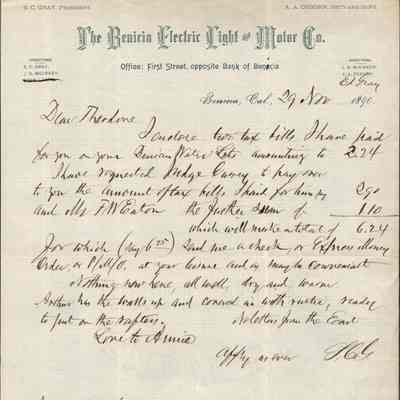 S. C. GRAY, PRESIDENT
The Benicia Electric Light and Motor Co.
Office: First Street, opposite Bank of Benicia
DIRECTORS
S. C. GRAY,
DIRECTORS
Ed Gray
Benicia, Cal., 29 Nov 1890
Dear Theodore
I enclose two tax bills I have paid
for you on your Benicia Water Lots amounting to 2.24
I have requested Judge to pay over
to you the amount of tax bills I paid for him, say 2.90
and Mr F W Eaton the further sum of 1.10
which will make a total of 6.24
for which (say 6 25) send me a check, or Express Money
Order, or P.M.O. at your leisure and as may be convenient
Nothing new here, all well, dry and warm
Arthur has the walls up and covered in with rustic, ready
to put on the rafters. No letters from the East
Love to Annie
Affly as ever SCG